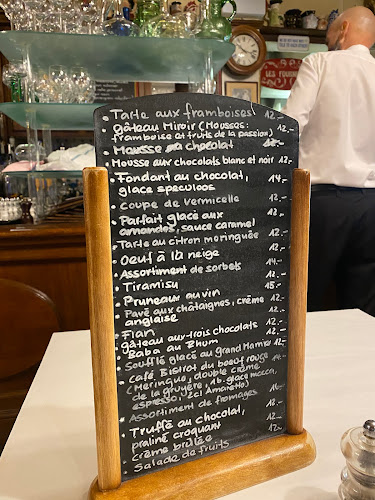 LES FOURN
Tarte aux framboises 12.-
Gâteau Miroir (Mousses:
framboise et fruits de la passion) 12.-
Mousse au chocolat
Mousse aux chocolats blanc et noir 12.-
Fondant au chocolat, 14.-
glace speculoos
Coupe de vermicelle 12.-
Parfait glacé aux 12.-
amandes, sauce caramel
Tarte au citron meringuée 12.-
Oeuf à la neige 12.-
Assortiment de sorbets 14.-
Tiramisu 15.-
Pruneaux au vin 12.-
Pavé aux châtaignes, crème 12.-
anglaise
Flan 12.-
gâteau aux trois chocolats 12.-
Baba au Rhum 12.-
Soufflé glacé au Grand Marnier 12.-
Café Bistrot du boeuf rouge 14.-
(Meringue, double crème
de la gruyère, 1b. glace mocca,
espresso, 2cl Amaretto)
Assortiment de fromages 14.-
Truffé au chocolat, 12.-
praliné croquant
Crème brûlée 12.-
Salade de fruits 12.-